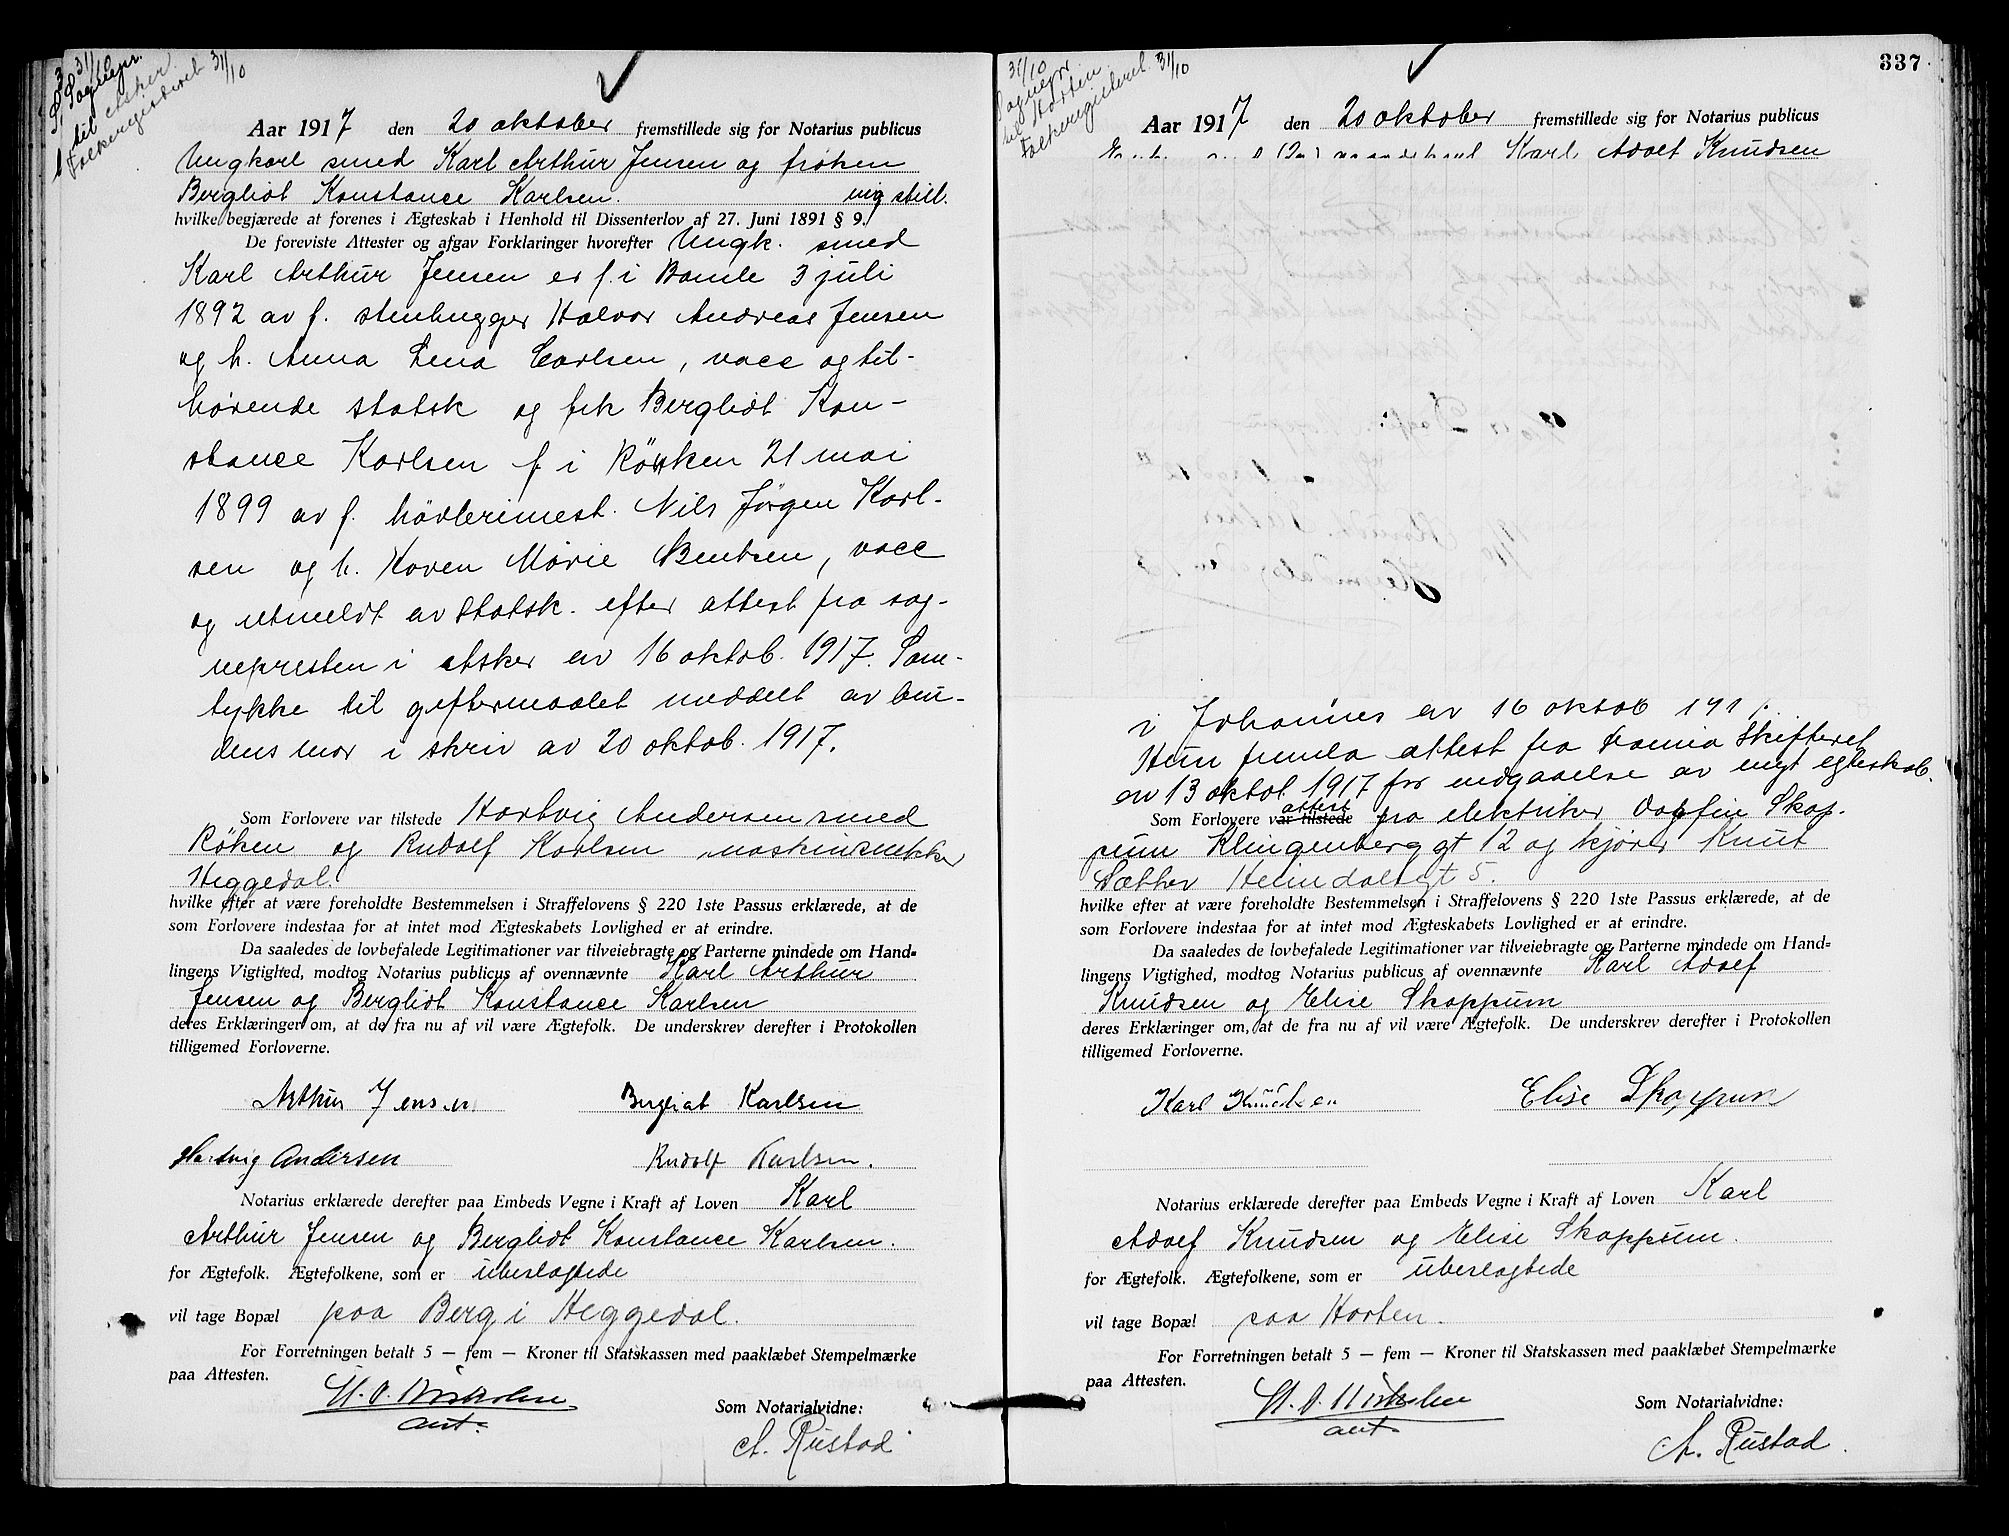 31/10
Sognepr.
til Asker
folkeregisteret 31/10
Aar 1917 den 20 oktober fremstillede sig for Notarius publicus
Ungkarl smed Karl Arthur Jensen og frøken
Bergliot Konstance Karlsen.
ung still.
hvilke begjærede at forenes i Ægteskab i Henhold til Dissenterlov af 27. Juni 1891 § 9.
De foreviste Attester og afgav Forklaringer hvorefter Ungk. smed
Karl Arthur Jensen er f. i Bamle 3 juli
1892 av f. stenhugger Halvor Andreas Jensen
og h. Anna Lena Carlsen, vacc og til-
hørende statsk og frk Bergliot Kon-
stance Karlsen f i Röyken 21 mai
1899 av f. høvlerimest. Nils Jörgen Karl-
sen og h. Karen Marie Bentsen, vacc
og utmeldt av statsk. efter attest fra sog-
nepresten i Asker av 16 oktob. 1917. Sam-
tykke til giftermaalet meddelt av bru-
dens mor i skriv av 20 oktob. 1917.
Som Forlovere var tilstede Hartvig Andersen smed
Röken og Rudolf Karlsen maskinsnekker
Heggedal.
hvilke efter at være foreholdte Bestemmelsen i Straffelovens § 220 1ste Passus erklærede, at de
som Forlovere indestaa for at intet mod Ægteskabets Lovlighed er at erindre.
Da saaledes de lovbefalede Legitimationer var tilveiebragte og Parterne mindede om Hand=
lingens Vigtighed, modtog Notarius publicus af ovennævnte Karl Arthur
Jensen og Bergliot Konstance Karlsen
deres Erklæringer om, at de fra nu af vil være Ægtefolk. De underskrev derefter i Protokollen
tilligemed Forloverne.
Arthur Jensen Bergliot Karlsen
Hartvig Andersen Rudolf Karlsen.
Notarius erklærede derefter paa Embeds Vegne i Kraft af Loven Karl
Arthur Jensen og Bergliot Konstance Karlsen.
for Ægtefolk. Ægtefolkene, som er ubeslægtede
vil tage Bopæl paa Berg i Heggedal.
For Forretningen betalt 5 — fem — Kroner til Statskassen med paaklæbet Stempelmærke
paa Attesten.
Som Notarialvidne:
aut.
A. Rustad
337
31/10
Sognepr.
til Horten
Folkeregisteret 31/10
Aar 1917 den 20 oktober fremstillede sig for Notarius publicus
Karl Adolf Knudsen
i Johannes av 16 oktob 191
Hun fremla attest fra Skifteret
av 13 oktob. 1917 for indgaaelse av nyt egteskab.
Som Forlovere var tilstede attest fra elektriker Dagfin Skop-
pum Klingenberg gt 12 og kjører Knut
Sæther Heimdalsgt 5.
hvilke efter at være foreholdte Bestemmelsen i Straffelovens § 220 1ste Passus erklærede, at de
som Forlovere indestaa for at intet mod Ægteskabets Lovlighed er at erindre.
Da saaledes de lovbefalede Legitimationer var tilveiebragte og Parterne mindede om Hand=
lingens Vigtighed, modtog Notarius publicus af ovennævnte Karl Adolf
Knudsen og Elise Skoppum
deres Erklæringer om, at de fra nu af vil være Ægtefolk. De underskrev derefter i Protokollen
tilligemed Forloverne.
Karl Knudsen Elise Skoppum
Notarius erklærede derefter paa Embeds Vegne i Kraft af Loven Karl
Adolf Knudsen og Elise Skoppum.
for Ægtefolk. Ægtefolkene, som er ubeslægtede
vil tage Bopæl paa Horten.
For Forretningen betalt 5 — fem — Kroner til Statskassen med paaklæbet Stempelmærke
paa Attesten.
Som Notarialvidne:
aut.
A. Rustad.